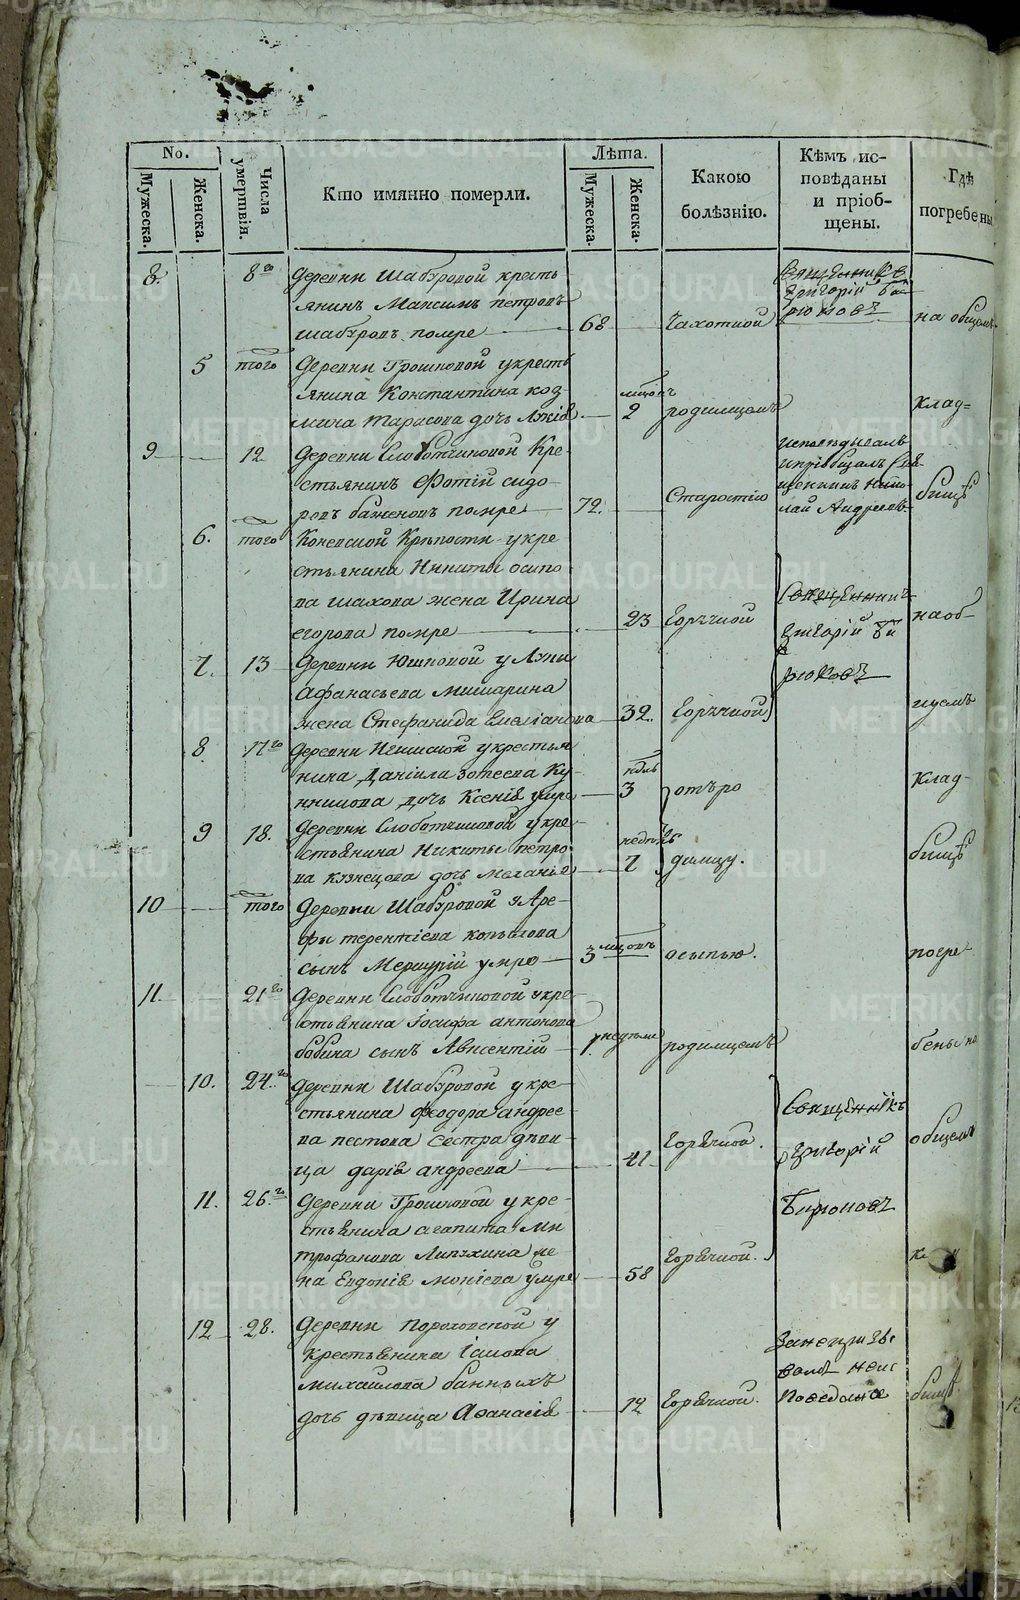 No.
Мужеска.
Женска.
Числа умертвія.
Кто имянно померли.
Лѣта.
Мужеска.
Женска.
Какою болѣзнію.
Кѣмъ ис-
повѣданы
и пріоб-
щены.
Гдѣ
погребены
8. 8го Деревни Шабуровой кресть
янинъ Максимъ петровъ
шабуровъ помре 68 Чахоткой
Священникъ
Григорій Би
рюковъ
на общемъ
5 того Деревни Грошковой укресть
янина Константина коз-
мича тарасова дочь 2 родимцемъ
клад=
9 12 Деревни Слободчиковой Кре-
стьянинъ Фотій сидо-
ровъ баженовъ помре 72. Старостію
исповѣдывалъ
ипріобщалъ Свя-
щенникъ Нико-
лай Андреевъ
бищѣ
6. того Коневской Крѣпости укре
стьянина Никиты осипо
ва шахова жена Ирина
егорова помре 23 Горячкой
Священникъ
Григорій Би
рюковъ
наоб-
7. 13 Деревни Юшковой у Луки
Афанасьева мишарина
жена Стефанида Емеліанова 32. Горячкой
щемъ
8. 17го Деревни укрестья
нина Даніила Зотеева Ку-
никова дочь Ксенія умре 3 отъро
клад-
9 18. Деревни Слободчиковой укре-
стьянина Никиты петро-
ва кузнецова дочь Меланія 7 димцу.
бищѣ
10 того Деревни Шабуровой уАре-
фы терентіева копылова
сынъ Меркурій умре 3 осыпью.
погре-
11. 21го Деревни Слободчиковой укре
стьянина Іосифа антонова
бобина сынъ Авксентій 1 недели родимцемъ
бены на
10. 24.го Деревни Шабуровой укре
стьянина Феодора андрее-
ва пестова Сестра дѣви-
ца дарія андреева 41 Горячкой.
Священникъ
Григорій
Бирюковъ
общемъ
11. 26.го Деревни Грошковой укре-
стьянина агапита Ми
трофанова Липухина же
на Евдокія мокіева умре 58 Горячкой.
12 28. Деревни Пороховской у
крестьянина
михайлова банныхъ
дочь дѣвица Афанасія 12 Горячкой.
бищѣ
METRIKI.GASO-URAL.RU